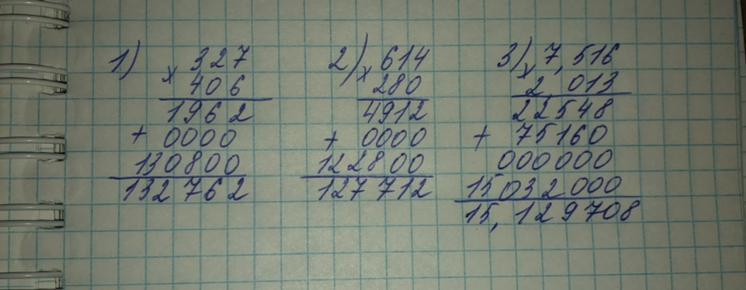 1) 327
× 406
1962
+ 0000
130800
132762
2) 614
× 280
4912
+ 0000
122800
127712
3) 7,516
× 2,013
22548
+ 75160
000000
15032000
15,129708